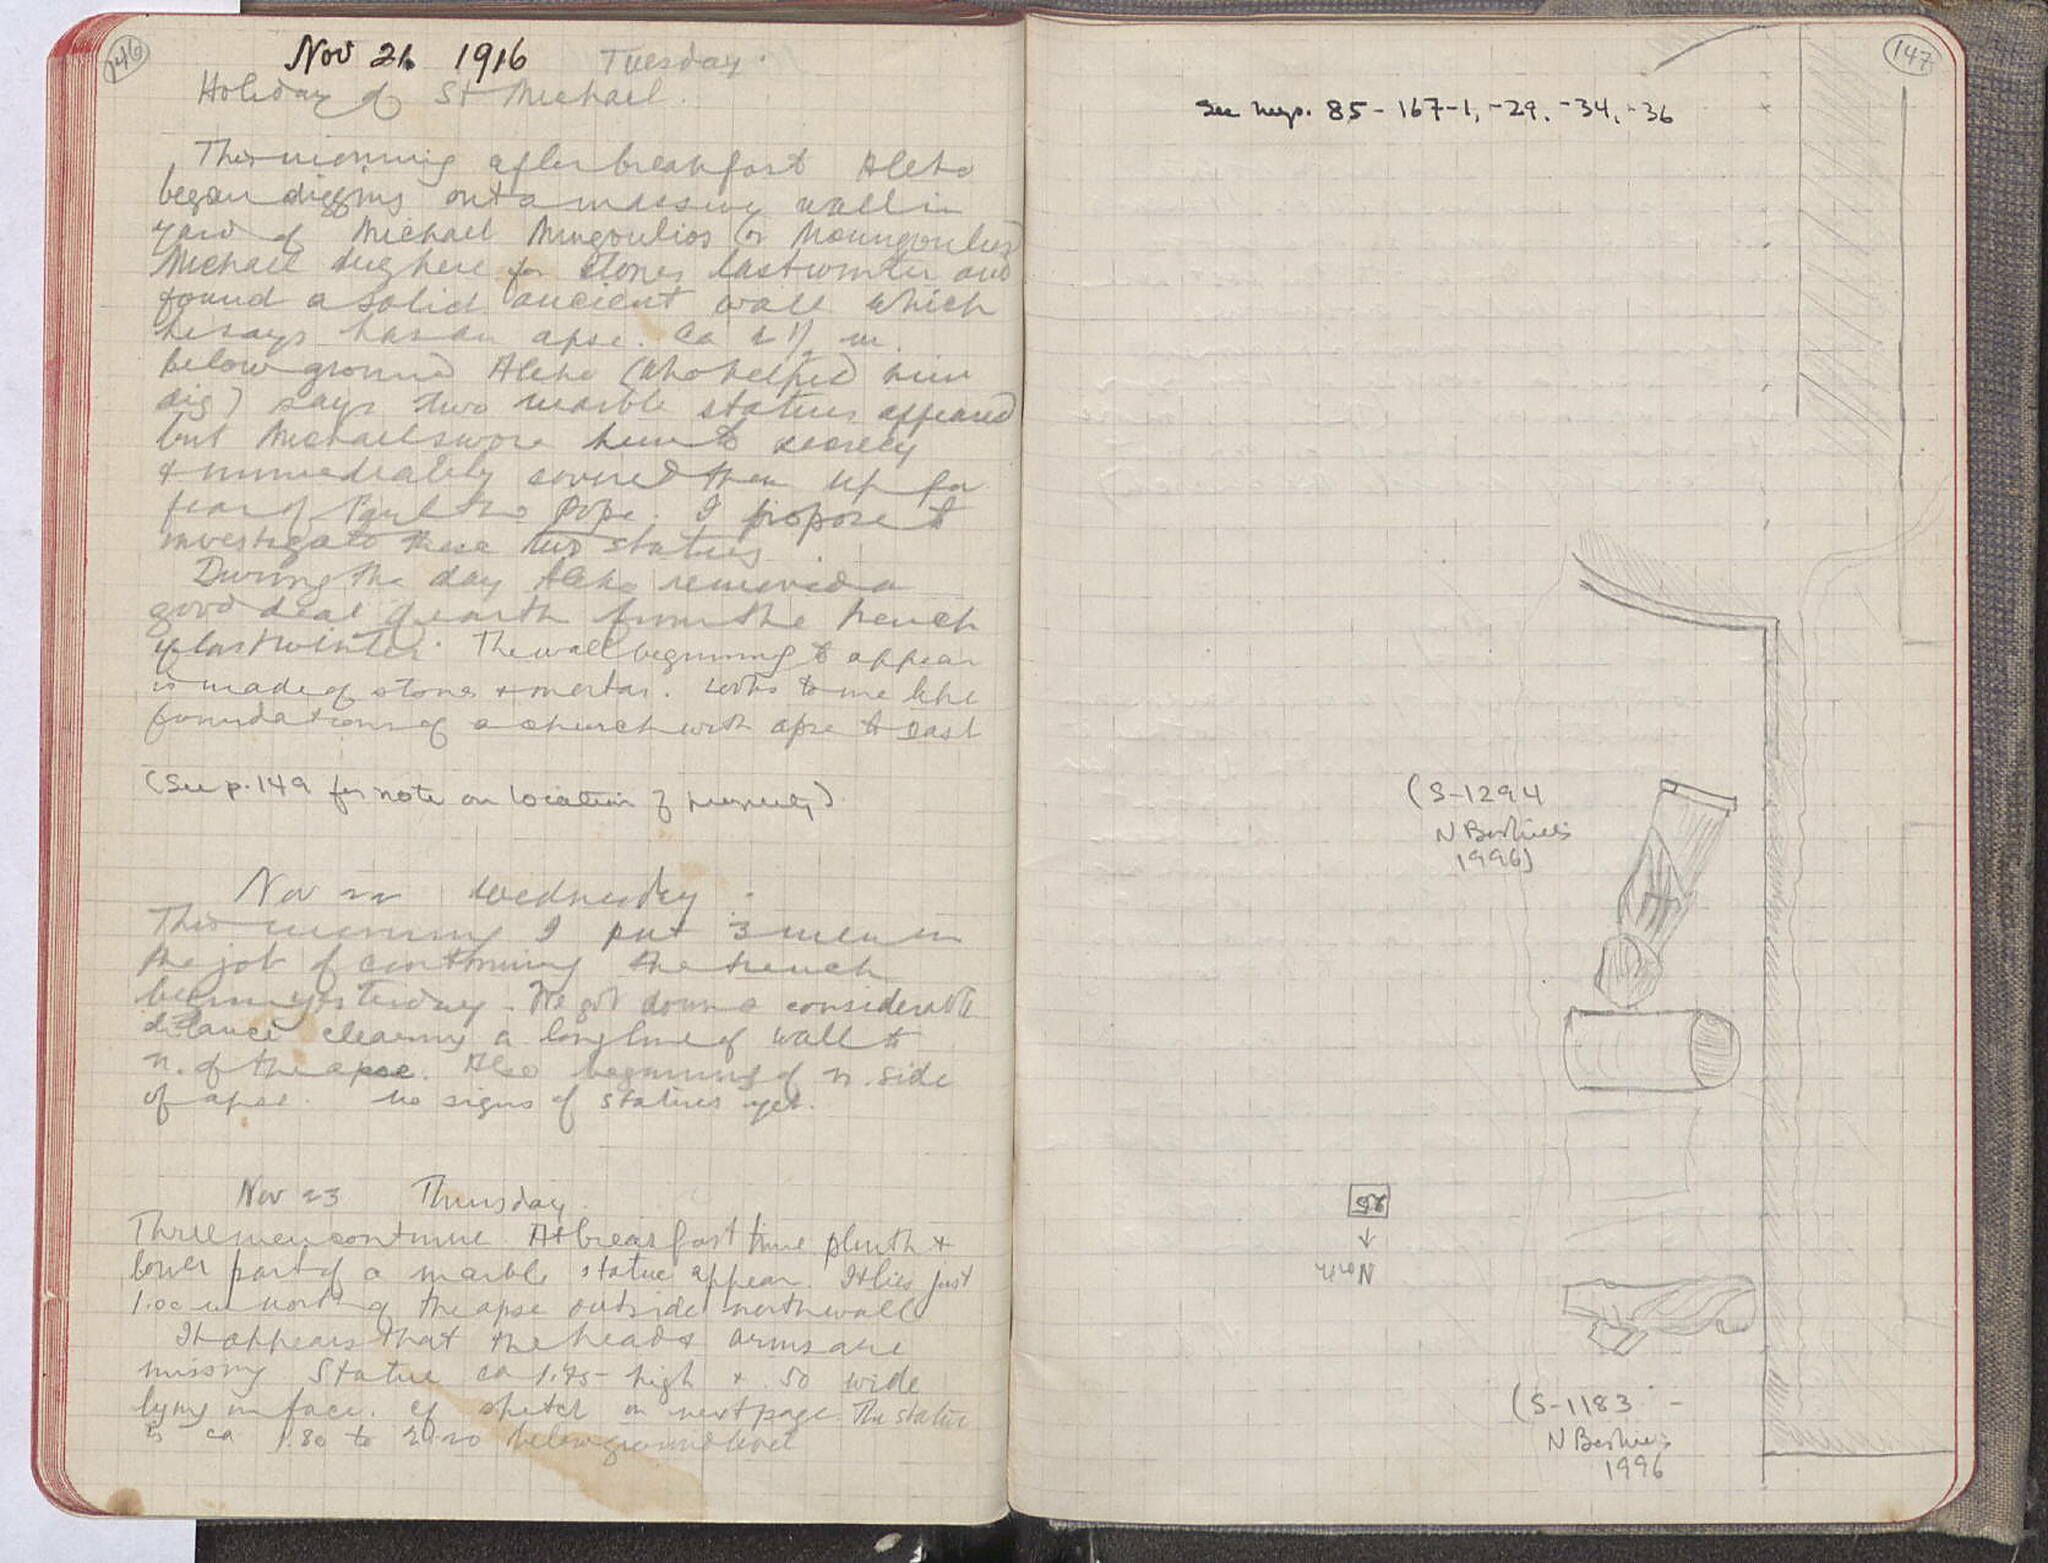 146
Nov 21. 1916 Tuesday.
Holiday of St Michael.
This morning after breakfast Aleko
began digging out a massive wall in
yard of Michael Mingoulios (or Moungoulios)
Michael dug here for stones last winter and
found a solid ancient wall which
he says has an apse. Ca 2 1/2 m.
below ground Aleko (who helped him
dig) says two marble statues appeared
but Michael swore him to secrecy
& immediately covered them up for
fear of Paul the Pope. I propose to
investigate these two statues
During the day Aleko removed a
good deal of earth from the trench
of last winter. The wall beginning to appear
is made of stones & mortar. Looks to me like
foundations of a church with apse to East
(See p. 149 for note on location of property)
Nov 22 Wednesday.
This morning I put 3 men on
the job of continuing the trench
begun yesterday. We got down a considerable
distance clearing a long line of wall to
n. of the apse. Also beginning of n. side
of apse. No signs of statues yet.
Nov 23 Thursday.
Three men continue. At breakfast time plinth &
lower part of a marble statue appear. It lies just
1.00 m north of the apse outside north wall
It appears that the head & arms are
missing. Statue ca 1.75 high & .50 wide
lying on face. cf sketch on next page. The statue
is ca 1.80 to 2.20 below ground level
147
See negs. 85-167-1, -29, -34, -36
(S-1294
N Bookidis
1996)
↓
North
(S-1183 -
N Bookidis
1996